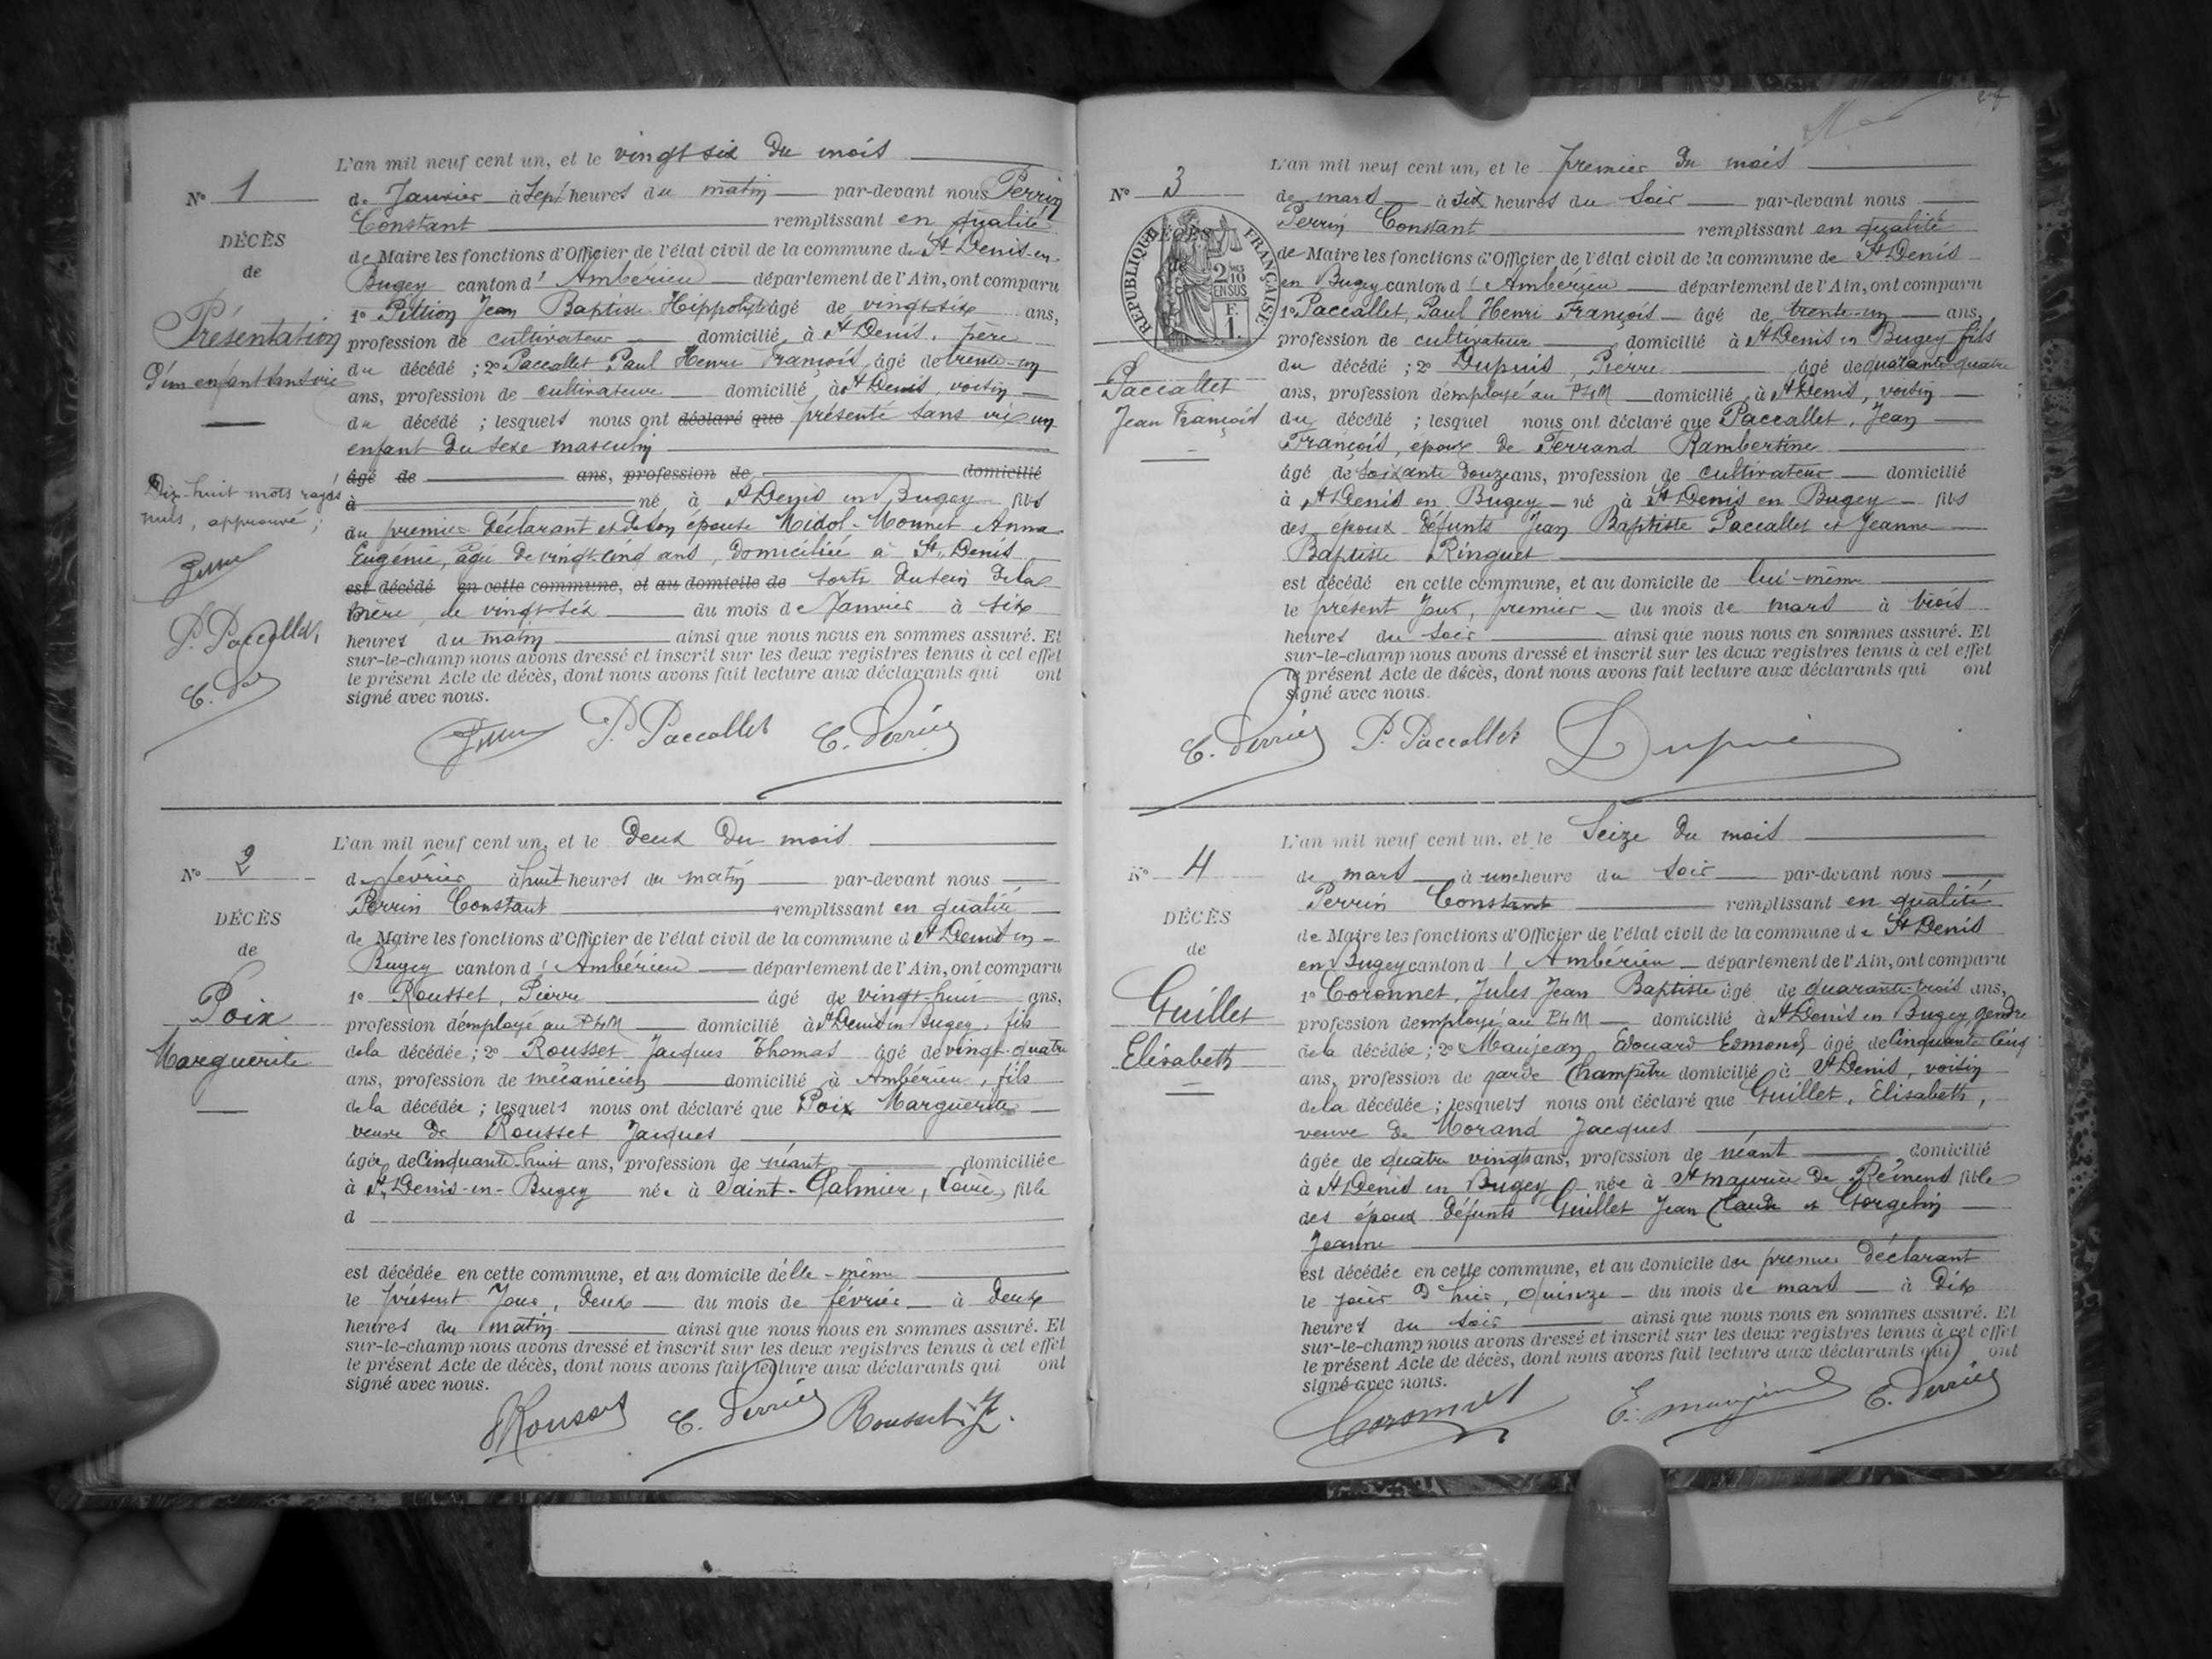 L'an mil neuf cent un, et le vingt six du mois
N° 1
de Janvier à sept heures du matin par-devant nous Perrin
Constant remplissant en qualité
DÉCÈS
de Maire les fonctions d'Officier de l'état civil de la commune de St Denis-en-
de
Bugey canton d'Ambérieu département de l'Ain, ont comparu
1° Pittion Jean Baptiste Hippolyte âgé de vingt-six ans,
Présentation
profession de cultivateur domicilié à St Denis, père
d'un enfant sans vie
du décédé ; 2° Paccallet Paul Henri François, âgé de trente-un
ans, profession de cultivateur domicilié à St Denis, voisin
du décédé ; lesquels nous ont déclaré que présenté sans vie un
enfant du sexe masculin
âgé de ans, profession de domicilié
Dix-huit mots rayés
nuls, approuvé ;
à né à St Denis en Bugey fils
du premier déclarant et de son épouse Midol-Monnet Anna
Eugénie, âgée de vingt-cinq ans, domiciliée à St Denis
est décédé en cette commune, et au domicile de sorti du sein de la
mère, le vingt-six du mois de Janvier à six
P. Paccallet
heures du matin ainsi que nous nous en sommes assuré. Et
sur-le-champ nous avons dressé et inscrit sur les deux registres tenus à cet effet
le présent Acte de décès, dont nous avons fait lecture aux déclarants qui ont
signé avec nous.
P. Paccallet C. Perrin
L'an mil neuf cent un, et le deux du mois
N° 2
de février à huit heures du matin par-devant nous
Perrin Constant remplissant en qualité
DÉCÈS
de Maire les fonctions d'Officier de l'état civil de la commune d St Denis en
de
Bugey canton d'Ambérieu département de l'Ain, ont comparu
1° Rousset, Pierre âgé de vingt-huit ans,
Poix
profession d'employé au PLM domicilié à St Denis en Bugey, fils
Marguerite
de la décédée ; 2° Rousset Jacques Thomas âgé de vingt-quatre
ans, profession de mécanicien domicilié à Ambérieu, fils
de la décédée ; lesquels nous ont déclaré que Poix Marguerite
veuve de Rousset Jacques
âgée de cinquante-huit ans, profession de néant domiciliée
à St Denis-en-Bugey née à Saint-Galmier, Loire, fille
d
est décédée en cette commune, et au domicile d'elle-même
le présent jour, deux du mois de février à deux
heures du matin ainsi que nous nous en sommes assuré. Et
sur-le-champ nous avons dressé et inscrit sur les deux registres tenus à cet effet
le présent Acte de décès, dont nous avons fait lecture aux déclarants qui ont
signé avec nous.
Rousset C. Perrin Rousset
L'an mil neuf cent un, et le premier du mois
N° 3
de mars à six heures du soir par-devant nous
Perrin Constant remplissant en qualité
DÉCÈS
RÉPUBLIQUE FRANÇAISE
2/10 EN SUS
F. 1.
de Maire les fonctions d'Officier de l'état civil de la commune de St Denis
en Bugey canton d'Ambérieu département de l'Ain, ont comparu
1° Paccallet, Paul Henri François âgé de trente-un ans,
profession de cultivateur domicilié à St Denis en Bugey fils
Paccallet
Jean François
du décédé ; 2° Dupuis, Pierre âgé de quarante-quatre
ans, profession d'employé au PLM domicilié à St Denis, voisin
du décédé ; lesquel nous ont déclaré que Paccallet, Jean
François, époux de Ferrand Rambertine
âgé de soixante douze ans, profession de cultivateur domicilié
à St Denis en Bugey né à St Denis en Bugey fils
des époux défunts Jean Baptiste Paccallet et Jeanne
Baptiste Ringuet
est décédé en cette commune, et au domicile de lui-même
le présent jour, premier du mois de mars à trois
heures du soir ainsi que nous nous en sommes assuré. Et
sur-le-champ nous avons dressé et inscrit sur les deux registres tenus à cet effet
le présent Acte de décès, dont nous avons fait lecture aux déclarants qui ont
signé avec nous.
C. Perrin P. Paccallet Dupuis
L'an mil neuf cent un, et le seize du mois
N° 4
de mars à une heure du soir par-devant nous
Perrin Constant remplissant en qualité
DÉCÈS
de Maire les fonctions d'Officier de l'état civil de la commune de St Denis
de
en Bugey canton d'Ambérieu département de l'Ain, ont comparu
1° Coronnet, Jules Jean Baptiste âgé de quarante-trois ans,
Guillet
profession d'employé au PLM domicilié à St Denis en Bugey, gendre
Elisabeth
de la décédée ; 2° Maujean Edouard Edmond, âgé de cinquante cinq
ans, profession de garde champêtre domicilié à St Denis, voisin
de la décédée ; lesquels nous ont déclaré que Guillet, Elisabeth,
veuve de Morand Jacques
âgée de quatre vingts ans, profession de néant domicilié
à St Denis en Bugey née à St Maurice de Rémens fille
des époux défunts Guillet Jean Claude et Gorgelin
Jeanne
est décédée en cette commune, et au domicile du premier déclarant
le jour d'hier, quinze du mois de mars à dix
heures du soir ainsi que nous nous en sommes assuré. Et
sur-le-champ nous avons dressé et inscrit sur les deux registres tenus à cet effet
le présent Acte de décès, dont nous avons fait lecture aux déclarants qui ont
signé avec nous.
Coronnet E. Maujean C. Perrin